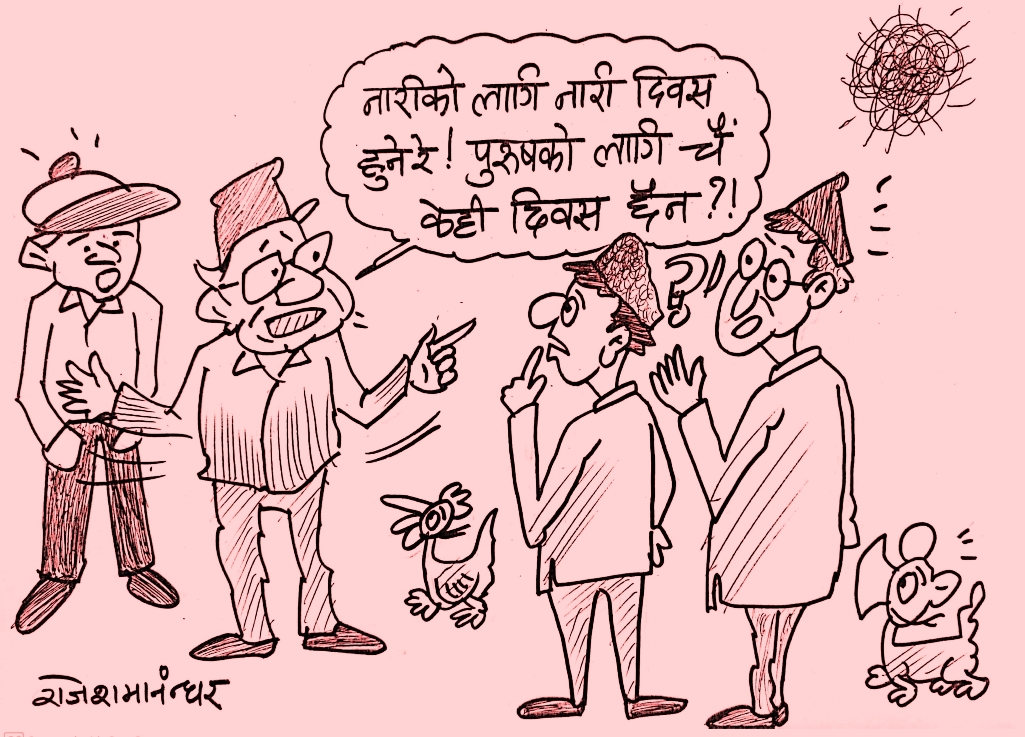 नारीको लागि नारी दिवस
हुने रे! पुरूषको लागि चैं
केही दिवस छैन ?!
राजेश मानन्धर